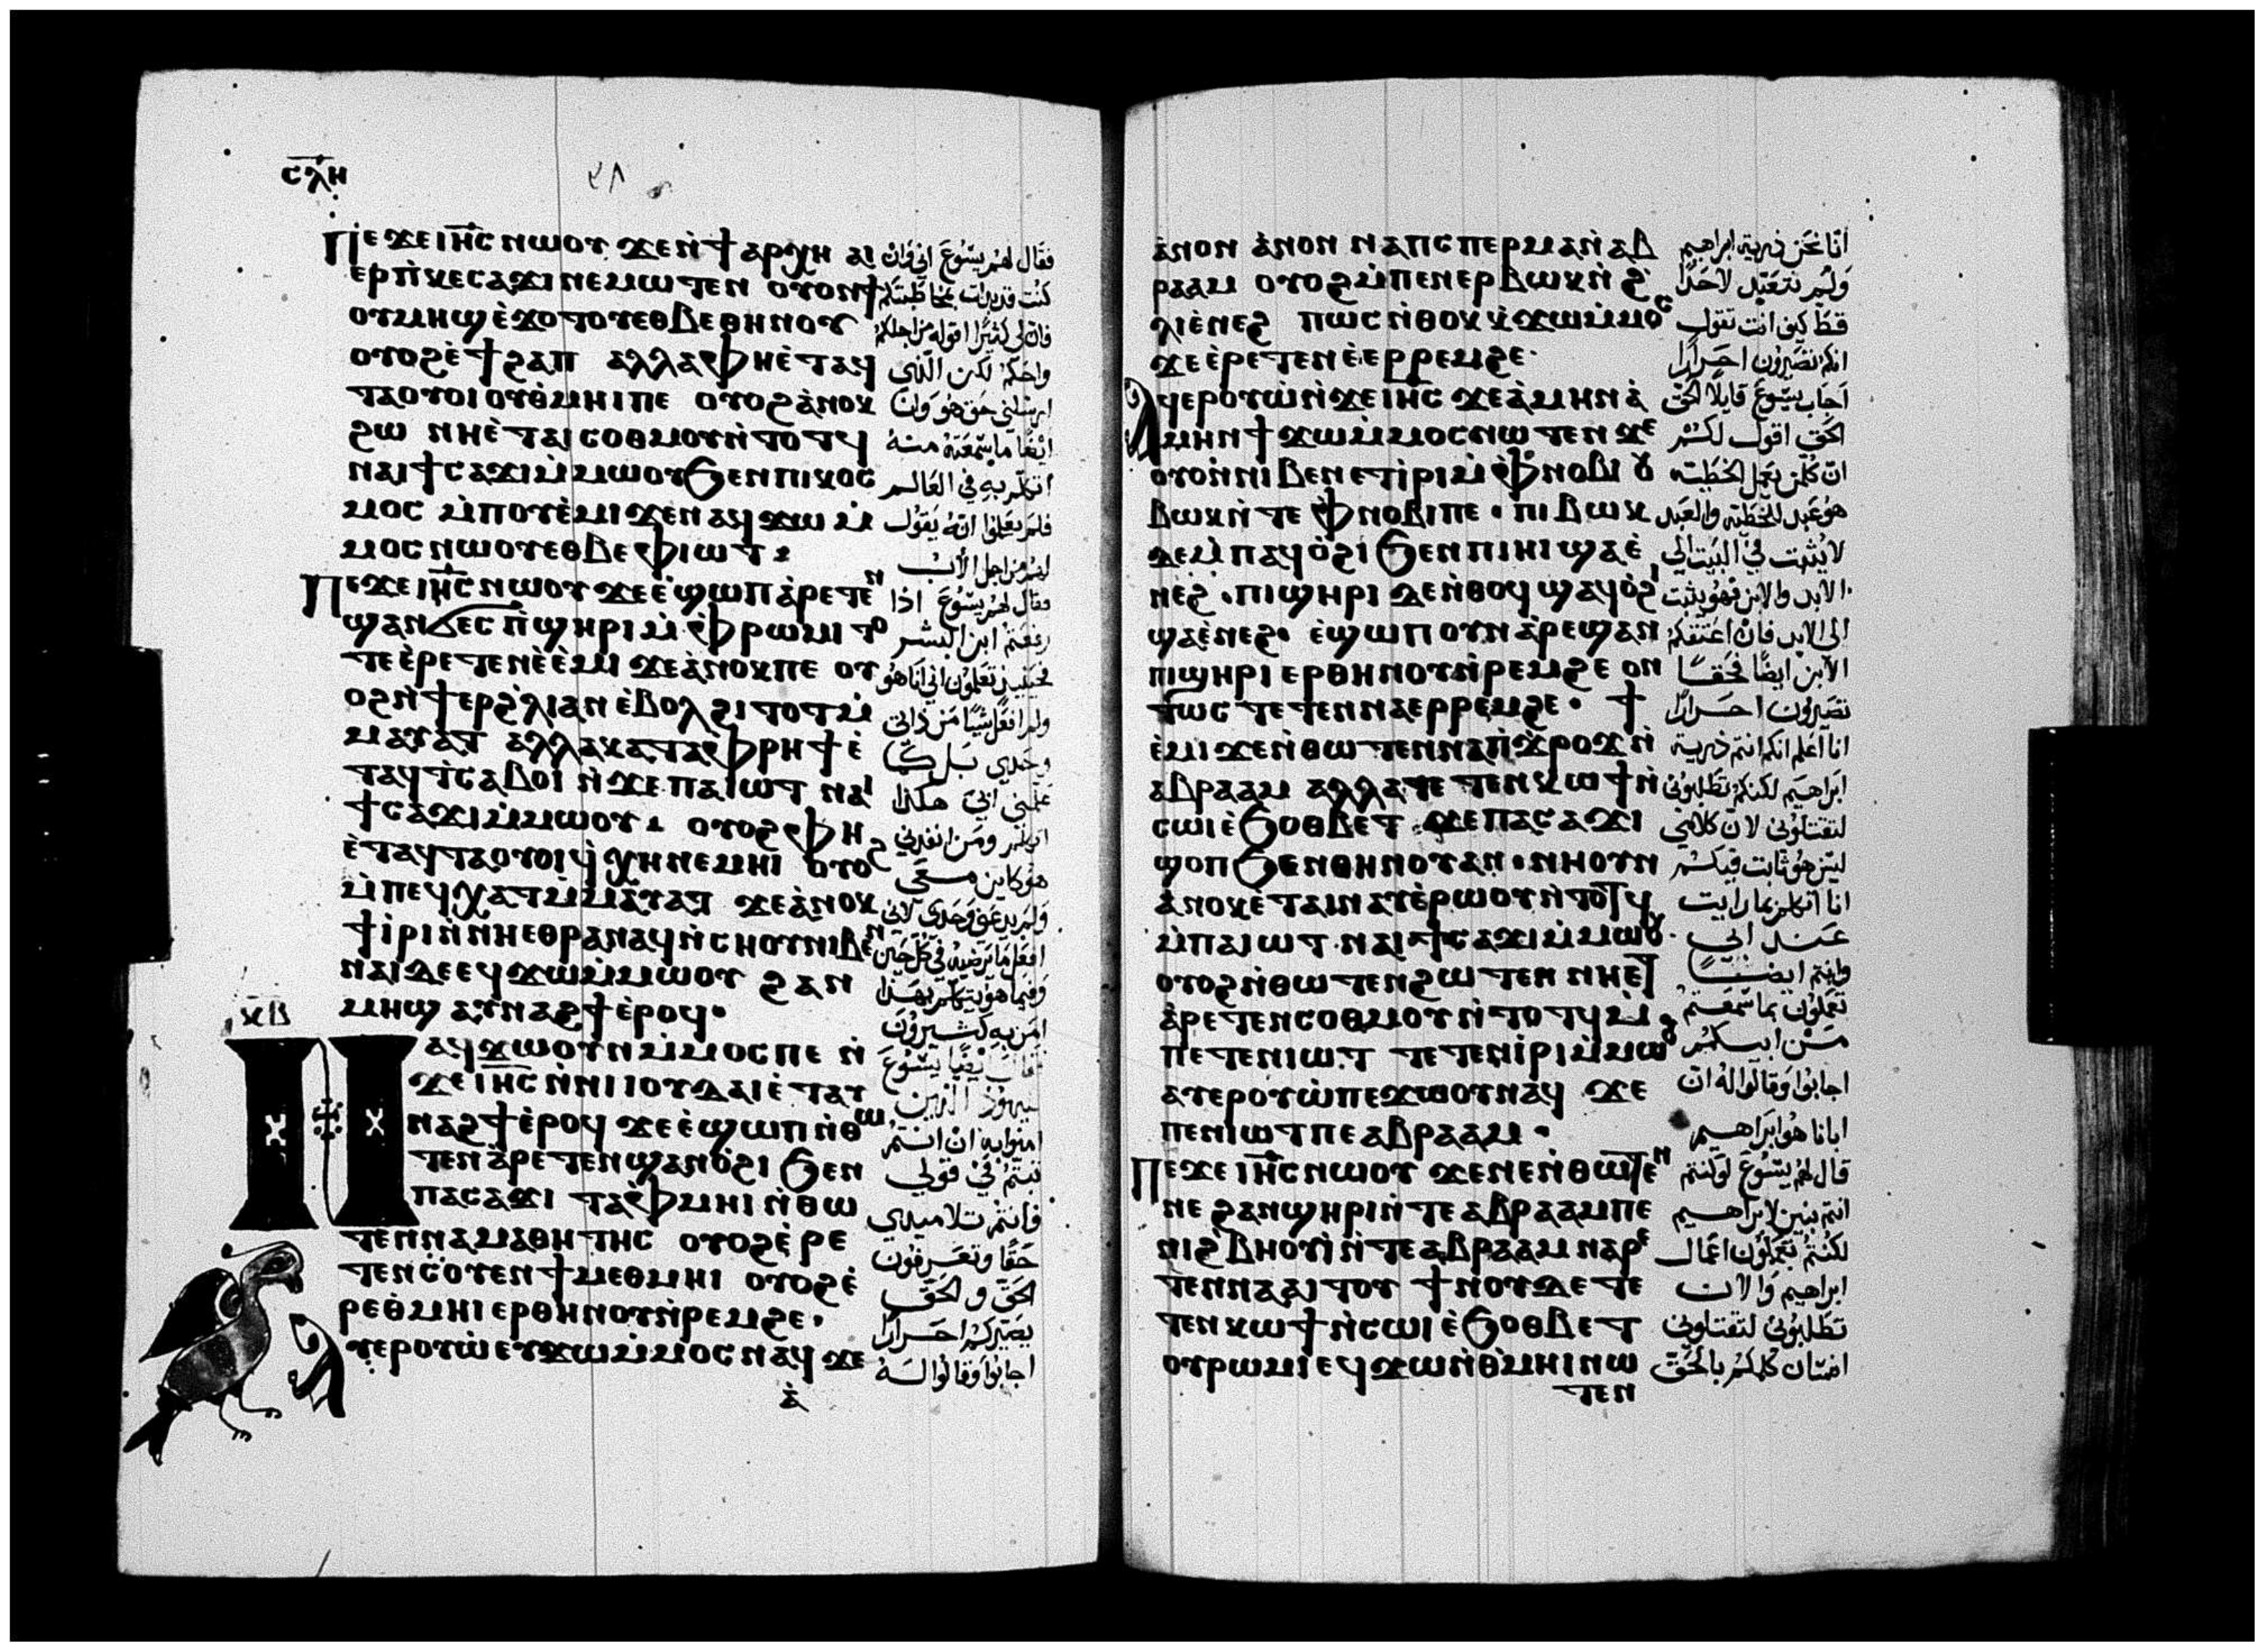 ⲥⲗⲏ
ⲡⲉϫⲉⲓⲏⲥ ⲛⲱⲟⲩ ϫⲉⲛϯⲁⲣⲭⲏ ⲁⲓ
ⲉⲣⲡⲕⲉⲥⲁϫⲓⲛⲉⲙⲱⲧⲉⲛ ⲟⲩⲟⲛϯ
ⲟⲩⲙⲏϣ ⲉϫⲟⲧⲟⲩⲉⲑⲃⲉⲑⲏⲛⲟⲩ
ⲟⲩⲟϩⲉϯϩⲁⲡ ⲁⲗⲗⲁⲫⲏⲉⲧⲁϥ
ⲧⲁⲟⲩⲟⲓⲟⲩⲑⲙⲏⲓⲡⲉ ⲟⲩⲟϩⲁⲛⲟⲕ
ϩⲱ ⲛⲏⲉⲧⲁⲓⲥⲟⲑⲙⲟⲩⲛⲧⲟⲧϥ
ⲛⲁⲓϯⲥⲁϫⲓⲙⲙⲱⲟⲩϧⲉⲛⲡⲓⲕⲟⲥ
ⲙⲟⲥ ⲙⲡⲟⲩⲉⲙⲓϫⲉⲛⲁϥϫⲱⲙ
ⲙⲟⲥⲛⲱⲟⲩⲉⲑⲃⲉⲫⲓⲱⲧ
ⲡⲉϫⲉⲓⲏⲥ ⲛⲱⲟⲩ ϫⲉⲉϣⲱⲡⲁⲣⲉⲧⲉⲛ
ϣⲁⲛϭⲉⲥⲡϣⲏⲣⲓⲙⲫⲣⲱⲙⲓ ⲧⲟ
ⲧⲉⲉⲣⲉⲧⲉⲛⲉⲉⲙⲓ ϫⲉⲁⲛⲟⲕⲡⲉ ⲟⲩ
ⲟϩⲛϯⲉⲣϩⲗⲓⲁⲛⲉⲃⲟⲗϩⲓⲧⲟⲧⲙ
ⲙⲁⲩⲁⲧ ⲁⲗⲗⲁⲕⲁⲧⲁⲫⲣⲏϯⲉ
ⲧⲁϥⲧⲥⲁⲃⲟⲓ ⲛϫⲉⲡⲁⲓⲱⲧ ⲛⲁⲓ
ϯⲥⲁϫⲓⲙⲙⲱⲟⲩ ⲟⲩⲟϩⲫⲏ
ⲉⲧⲁϥⲧⲁⲟⲩⲟⲓϥⲭⲏⲛⲉⲙⲏⲓ ⲟⲩⲟϩ
ⲙⲡⲉϥⲭⲁⲧⲙⲙⲁⲩⲁⲧ ϫⲉⲁⲛⲟⲕ
ϯⲓⲣⲓⲛⲛⲏⲉⲑⲣⲁⲛⲁϥⲛⲥⲏⲟⲩⲛⲓⲃⲉⲛ
ⲛⲁⲓⲇⲉⲉϥϫⲱⲙⲙⲱⲟⲩ ϩⲁⲛ
ⲙⲏϣ ⲁⲩⲛⲁϩϯⲉⲣⲟϥ
ⲕⲃ
ⲛⲁϥϫⲱⲟⲩⲛⲙⲙⲟⲥⲡⲉ ⲛ
ϫⲉⲓⲏⲥ ⲛⲛⲓⲓⲟⲩⲇⲁⲓⲉⲧⲁⲩ
ⲛⲁϩϯⲉⲣⲟϥ ϫⲉⲉϣⲱⲡⲛⲑⲱ
ⲧⲉⲛⲁⲣⲉⲧⲉⲛϣⲁⲛⲟϩⲓ ϧⲉⲛ
ⲡⲁⲥⲁϫⲓ ⲧⲁⲫⲙⲏⲓ ⲛⲑⲱ
ⲧⲉⲛⲛⲁⲙⲁⲑⲏⲧⲏⲥ ⲟⲩⲟϩⲉⲣⲉ
ⲧⲉⲛⲥⲟⲩⲉⲛϯⲙⲉⲑⲙⲏⲓ ⲟⲩⲟϩⲉ
ⲣⲉⲑⲙⲏⲓⲉⲣⲑⲏⲛⲟⲩⲛⲣⲉⲙϩⲉ
ⲁⲩⲉⲣⲟⲩⲱⲉⲩϫⲱⲙⲙⲟⲥ ⲛⲁϥ ϫⲉ
ⲁ
فقال لهم يسوع اني وان
كنت قد بدات بمخاطبتكم
فان لي كثيرا اقوله من اجلكم
واحكم لكن الذي
ارسلني حق هو وانا
ايضا ما سمعته منه
اتكلم به في العالم
فلم يعلموا انه يقول
لهم من اجل الاب
فقال لهم يسوع اذا
رفعتم ابن البشر
فحينئيذ تعلمون اني انا هو
ولم افعل شيا من ذاتي
وحدي بل كما
علمني ابي هكذا
اتكلم ومن انفدني
هو كاين معي
ولم يدعني وحدي لاني
افعل ما يرضيه في كل حين
وفيما هو يتكلم بهذا
امن به كثيرون
فقال ايضا يسوع
لليهود الذين
امنوا به ان انتم
ثبتم في قولي
فانتم تلاميدي
حقا وتعرفون
الحق والحق
يصيركم احرارا
اجابوا وقالوا له
ⲁⲛⲟⲛ ⲁⲛⲟⲛ ⲛⲁⲡⲥⲡⲉⲣⲙⲁⲛⲁⲃ
ⲣⲁⲁⲙ ⲟⲩⲟϩⲙⲡⲉⲛⲉⲣⲃⲱⲕⲛϩ
ⲗⲓⲉⲛⲉϩ ⲡⲱⲥ ⲛⲑⲟⲕ ⲕϫⲱⲙⲙⲟⲥ
ϫⲉⲉⲣⲉⲧⲉⲛⲉⲉⲣⲣⲉⲙϩⲉ
ⲁϥⲉⲣⲟⲩⲱⲛϫⲉⲓⲏⲥ ϫⲉⲁⲙⲏⲛⲁ
ⲙⲏⲛϯϫⲱⲙⲙⲟⲥⲛⲱⲧⲉⲛ ϫⲉ
ⲟⲩⲟⲛⲛⲓⲃⲉⲛⲉⲧⲓⲣⲓⲙⲫⲛⲟⲃⲓ ⲟⲩ
ⲃⲱⲕⲛⲧⲉ ⲫⲛⲟⲃⲓⲡⲉ ⲡⲓⲃⲱⲕ
ⲇⲉⲙⲡⲁϥⲟϩⲓ ϧⲉⲛⲡⲓⲏⲓϣⲁⲉ
ⲛⲉϩ ⲡⲓϣⲏⲣⲓ ⲇⲉⲛⲑⲟϥ ϣⲁϥⲟϩⲓ
ϣⲁⲉⲛⲉϩ ⲉϣⲱⲡⲟⲩⲛⲁⲣⲉϣⲁⲛ
ⲡⲓϣⲏⲣⲓ ⲉⲣⲑⲏⲛⲟⲩⲛⲣⲉⲙϩⲉ ⲟⲛ
ⲧⲱⲥ ⲧⲉⲧⲉⲛⲛⲁⲉⲣⲣⲉⲙϩⲉ ϯ
ⲉⲙⲓ ϫⲉⲛⲑⲱⲧⲉⲛⲛⲁⲡϫⲣⲟϫⲛ
ⲁⲃⲣⲁⲁⲙ ⲁⲗⲗⲁⲧⲉⲧⲉⲛⲕⲱϯⲛ
ⲥⲱⲓⲉϧⲟⲑⲃⲉⲧ ϫⲉⲡⲁⲥⲁϫⲓ
ϣⲟⲡϧⲉⲛⲑⲏⲛⲟⲩⲁⲛ ⲛⲏⲟⲩⲛ
ⲁⲛⲟⲕⲉⲧⲁⲓⲛⲁⲩⲉⲣⲱⲟⲩⲛⲧⲟⲧϥ
ⲙⲡⲁⲓⲱⲧ ⲛⲁⲓϯⲥⲁϫⲓⲙⲙⲱⲟⲩ
ⲟⲩⲟϩⲛⲑⲱⲧⲉⲛϩⲱⲧⲉⲛ ⲛⲏⲉⲧ
ⲁⲣⲉⲧⲉⲛⲥⲟⲑⲙⲟⲩⲛⲧⲟⲧϥⲙ
ⲡⲉⲧⲉⲛⲓⲱⲧ ⲧⲉⲧⲉⲛⲓⲣⲓⲙⲙⲱⲟⲩ
ⲁⲩⲉⲣⲟⲩⲱⲡⲉϫⲱⲟⲩⲛⲁϥ ϫⲉ
ⲡⲉⲛⲓⲱⲧⲡⲉⲁⲃⲣⲁⲁⲙ
ⲡⲉϫⲉⲓⲏⲥ ⲛⲱⲟⲩ ϫⲉⲛⲉⲛⲑⲱⲧⲉⲛ
ⲛⲉ ϩⲁⲛϣⲏⲣⲓⲛⲧⲉⲁⲃⲣⲁⲁⲙⲡⲉ
ⲛⲓϩⲃⲏⲟⲩⲓⲛⲧⲉⲁⲃⲣⲁⲁⲙ ⲛⲁⲣⲉ
ⲧⲉⲛⲛⲁⲁⲓⲧⲟⲩ ϯⲛⲟⲩⲇⲉⲧⲉ
ⲧⲉⲛⲕⲱϯⲛⲥⲱⲓ ⲉϧⲟⲑⲃⲉⲧ
ⲟⲩⲣⲱⲙⲓⲉϥϫⲱⲛⲑⲙⲏⲓⲛⲱ
ⲧⲉⲛ
انا نحن ذرية ابراهيم
ولم نتعبد لاحدا
قط كيف انت تقول
انكم تصيرون احرارا
اجاب يسوع قايلا الحق
الحق اقول لكم
ان كلمن يعمل الخطية
هو عبد للخطية والعبد
لا يثبت في البيت الي
الابد والابن فهو يثبت
الى الابد فان اعتقكم
الابن ايضا فحقا
تصيرون احرارا
انا اعلم انكم انتم ذرية
ابراهيم لكنكم تطلبوني
لتقتلوني لان كلامي
ليس هو ثابت فيكم
انا اتكلم بما رايت
عند ابي
وانتم ايضا
تعملون بما سمعتم
من ابيكم
اجابوا وقالوا له ان
ابانا هو ابراهيم
قال لهم يسوع لو كنتم
انتم بنين لابراهيم
لكنتم تعملون اعمال
ابراهيم والان
تطلبوني لتقتلوني
انسان كلمكم بالحق